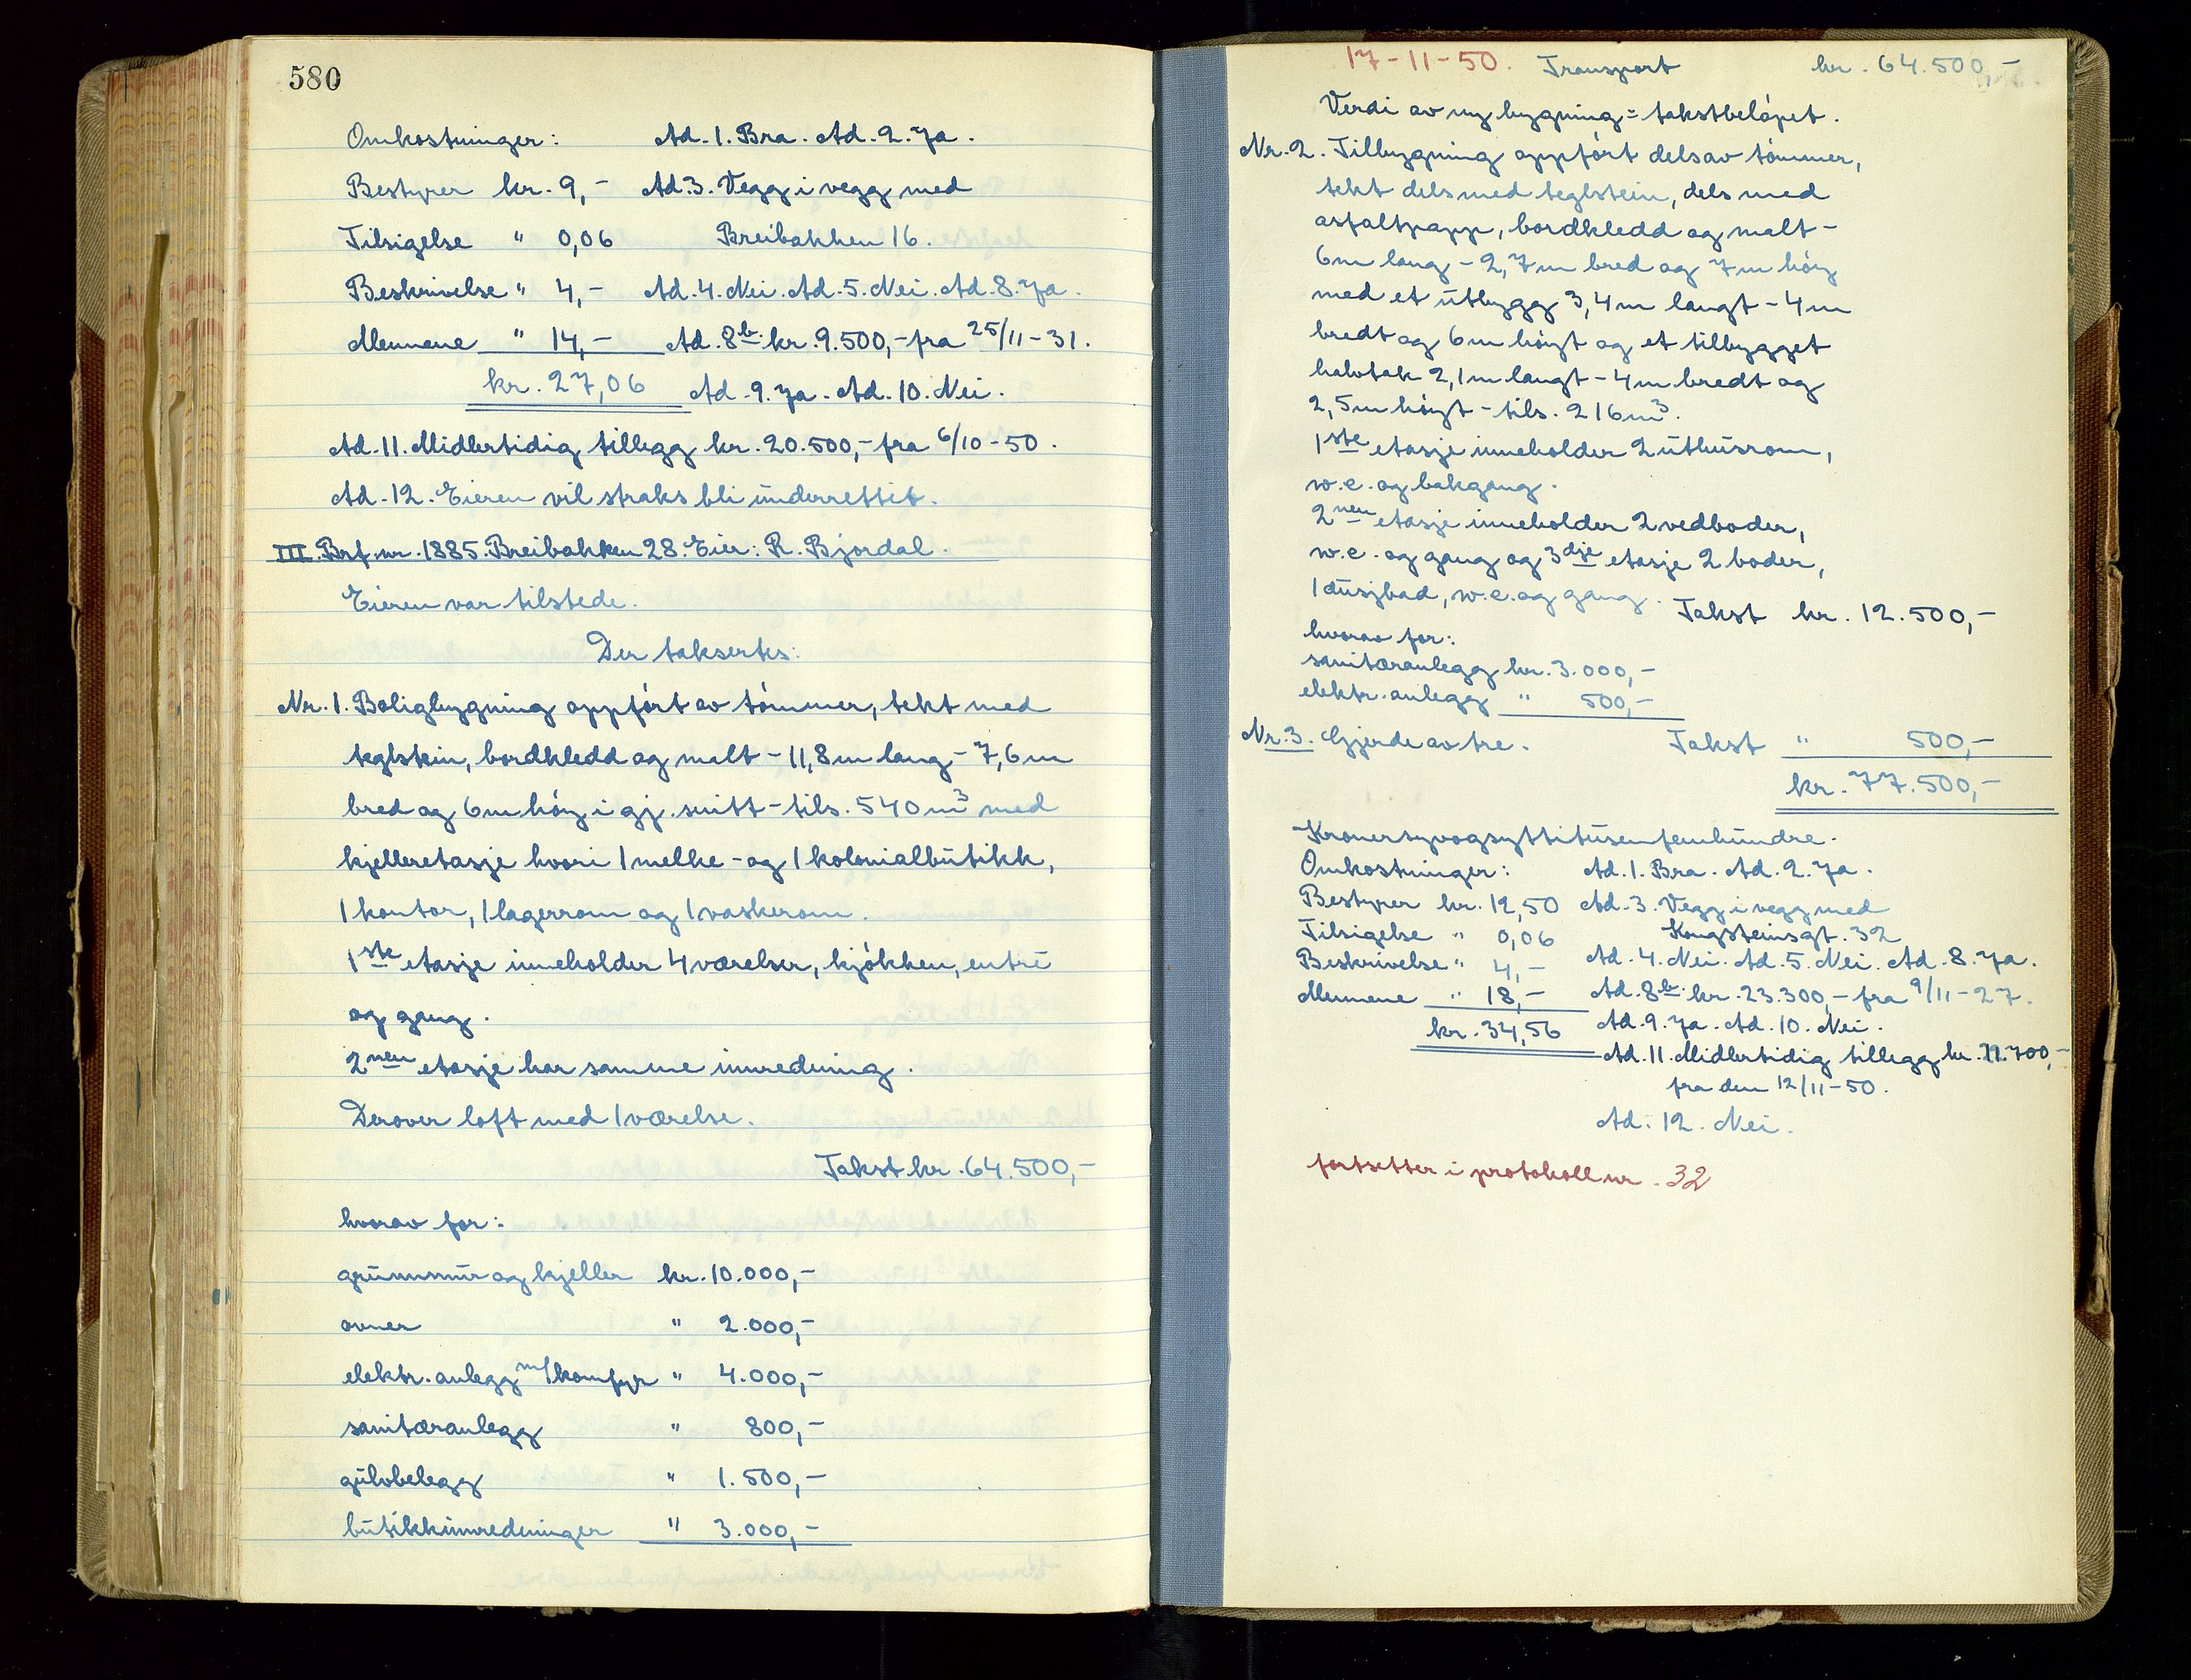 580
Omkostninger: Ad. 1. Bra. Ad. 2. Ja.
Bestyrer kr. 9,- Ad. 3. Vegg i vegg med
Tilsigelse " 0,06 Breibakken 16.
Beskrivelse " 4,- Ad. 4. Nei. Ad. 5. Nei. Ad. 8. Ja.
Mennene " 14,- Ad. 8b. kr. 9.500,- fra 25/11-31.
kr. 27,06 Ad. 9. Ja. Ad. 10. Nei.
Ad. 11. Midlertidig tillegg kr. 20.500,- fra 6/10-50.
Ad. 12. Eieren vil straks bli underrettet.
III. Brf. nr. 1885. Breibakken 28. Eier: R. Bjordal.
Eieren var tilstede.
Der taksertes:
Nr. 1. Boligbygning oppfórt av tómmer, tekt med
teglstein, bordkledd og malt - 11,8 m lang - 7,6 m
bred og 6 m hóy i gj. snitt - tils. 540 m³ med
kjelleretasje hvori 1 melke- og 1 kolonialbutikk,
1 kontor, 1 lagerrom og 1 vaskerom.
1ste etasje inneholder 4 værelser, kjókken, entré
og gang.
2nen etasje har samme innredning.
Derover loft med 1 værelse.
Takst kr. 64.500,-
hvorav for:
grunnmur og kjeller kr. 10.000,-
ovner " 2.000,-
elektr. anlegg m/komfyr " 4.000,-
sanitæranlegg " 800,-
gulvbelegg " 1.500,-
butikkinnredninger " 3.000,-
17-11-50. Transport kr. 64.500,-
Verdi av ny bygning = takstbelópet.
Nr. 2. Tilbygning oppfórt dels av tómmer,
tekt dels med teglstein, dels med
asfaltpapp, bordkledd og malt -
6 m lang - 2,7 m bred og 7 m hóy
med et utbygg 3,4 m langt - 4 m
bredt og 6 m hóyt og et tilbygget
halvtak 2,1 m langt - 4 m bredt og
2,5 m hóyt - tils. 216 m³.
1ste etasje inneholder 2 uthusrom,
w.c. og bakgang.
2nen etasje inneholder 2 vedboder,
w.c. og gang og 3dje etasje 2 boder,
1 dusjbad, w.c. og gang. Takst kr. 12.500,-
hvorav for:
sanitæranlegg kr. 3.000,-
elektr. anlegg " 500,-
Nr. 3. Gjerde av tre. Takst " 500,-
kr. 77.500,-
Kronersyvogsyttitusenfemhundre.
Omkostninger: Ad. 1. Bra. Ad. 2. Ja.
Bestyrer kr. 12,50 Ad. 3. Vegg i vegg med
Tilsigelse " 0,06 Kongsteinsgt. 32
Beskrivelse " 4,- Ad. 4. Nei. Ad. 5. Nei. Ad. 8. Ja.
Mennene " 18,- Ad. 8b. kr. 23.300,- fra 9/11-27.
kr. 34,56 Ad. 9. Ja. Ad. 10. Nei.
Ad. 11. Midlertidig tillegg kr.
fra den 12/11-50.
Ad. 12. Nei.
fortsetter i protokoll nr. 32